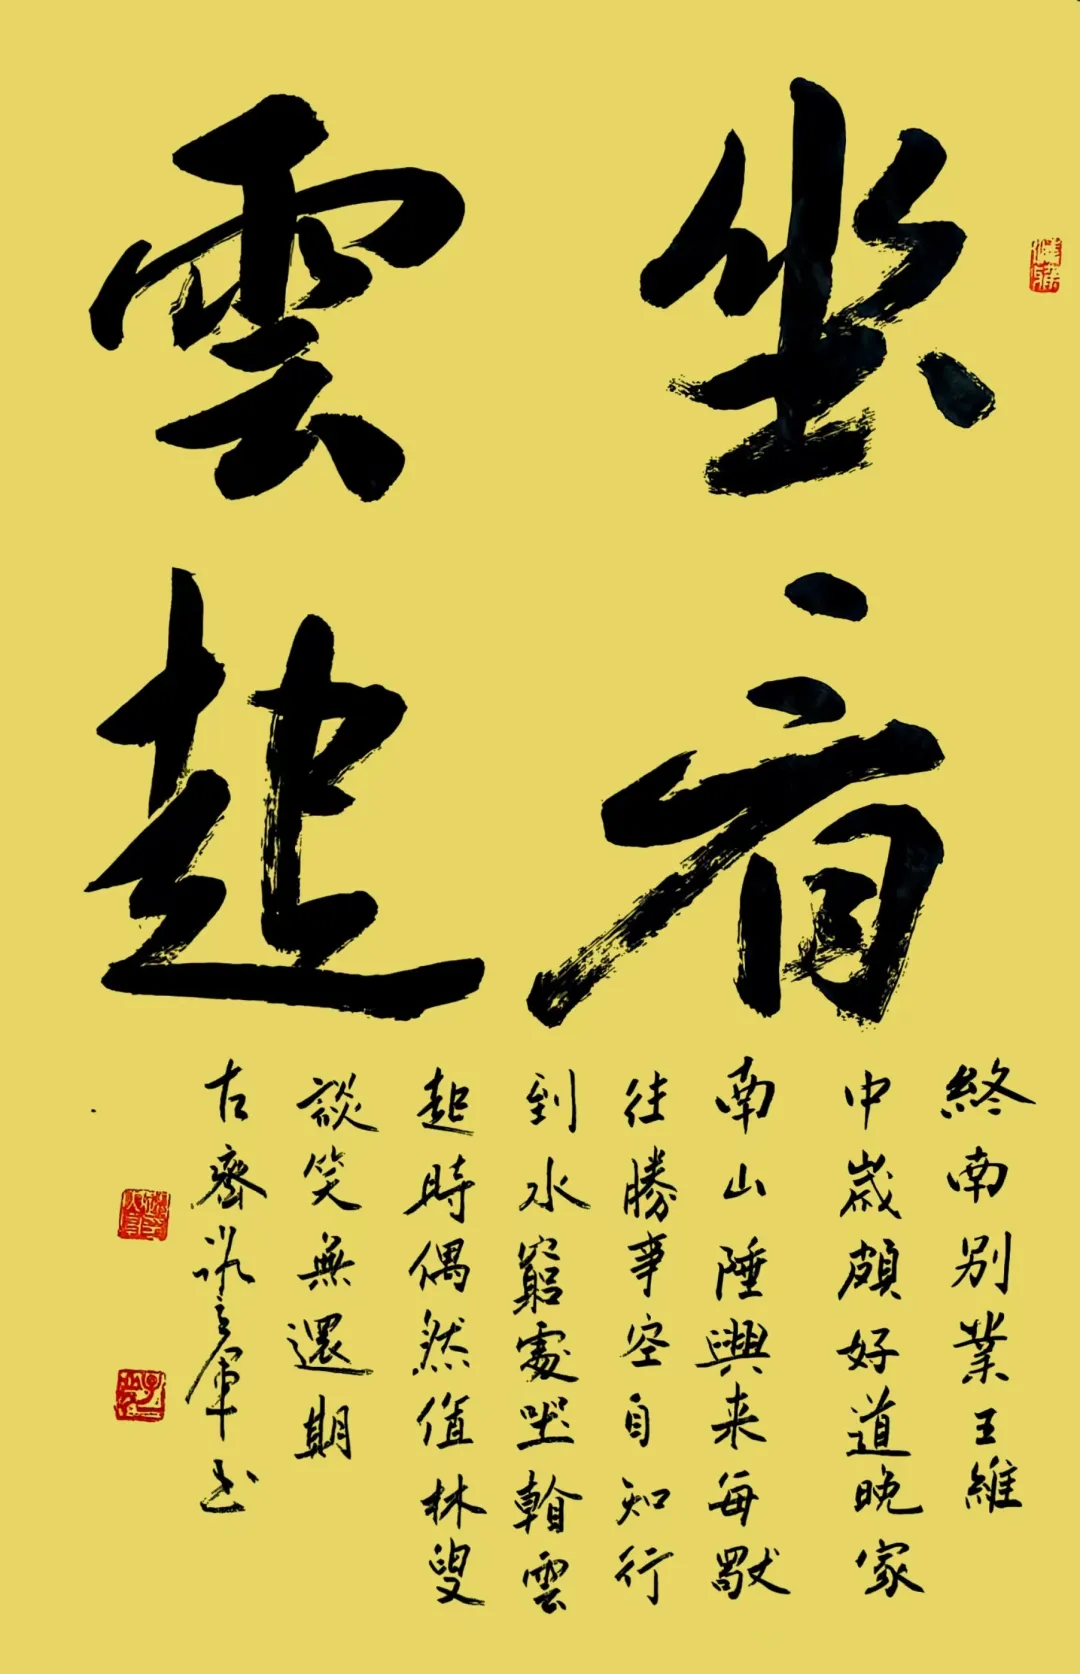 坐看
雲起
終南別業王維
中歲頗好道晚家
南山陲興来每獨
往勝事空自知行
到水窮處坐看雲
起時偶然值林叟
談笑無還期
古齊立軍书